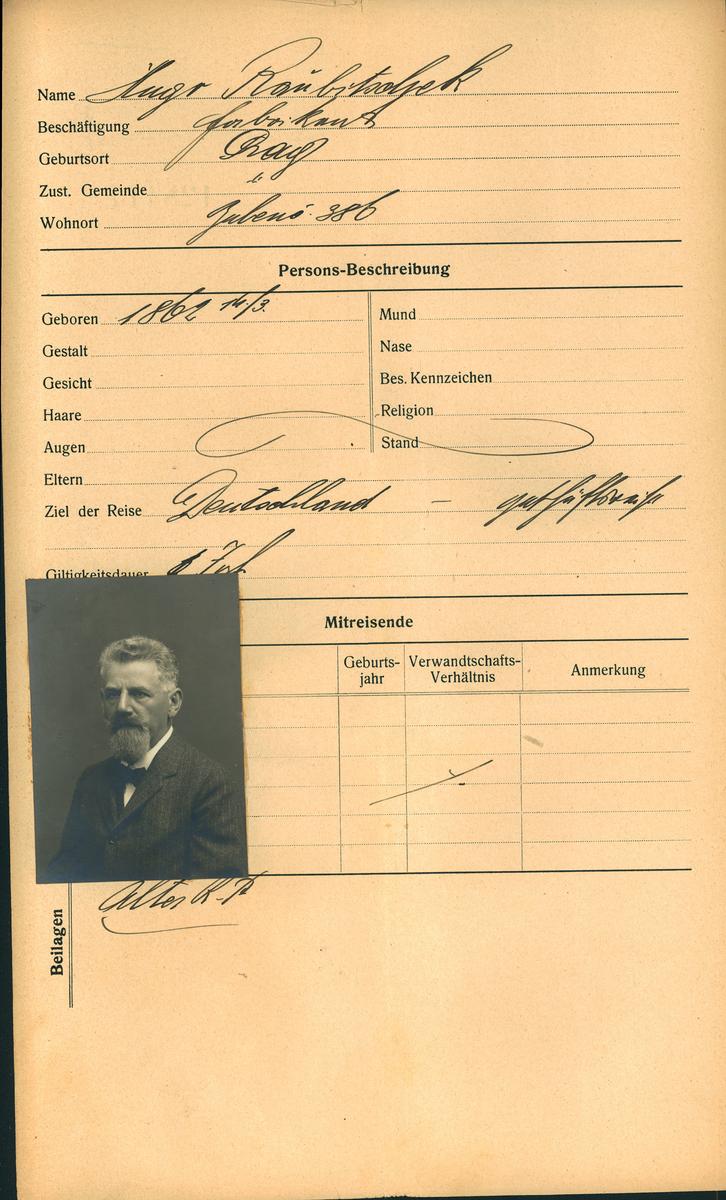 Name Hugo Raubitschek
Beschäftigung Fabrikant
Geburtsort Prag
Zust. Gemeinde "
Wohnort 386
Persons-Beschreibung
Geboren 1862 14/3.
Gestalt
Gesicht
Haare
Augen
Mund
Nase
Bes. Kennzeichen
Religion
Stand
Eltern
Ziel der Reise Deutschland – Geschäftsreise
Giltigkeitsdauer 1 Jah
Mitreisende
Geburts-
jahr
Verwandtschafts-
Verhältnis
Anmerkung
Beilagen
Alter R. P.